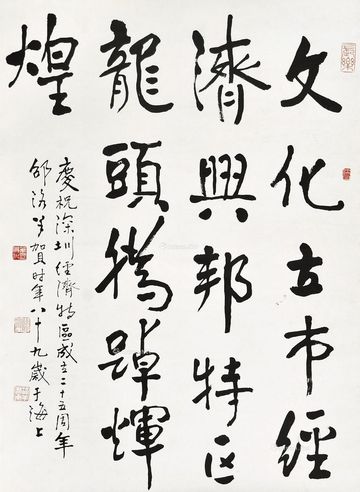 文化立市經
濟興邦特区
龍頭騰踔輝
煌
慶祝深圳經濟特區成立二十五周年
邵洛羊賀时年八十九歲于海上